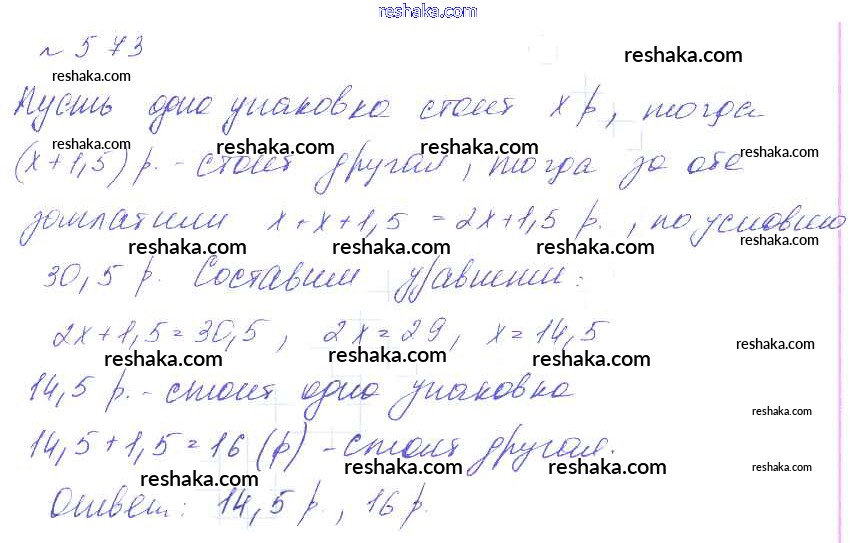 reshaka.com
№ 573
reshaka.com
reshaka.com
Пусть одна упаковка стоит x р, тогда
reshaka.com reshaka.com reshaka.com reshaka.com
(x+1,5) р. - стоит другая, тогда за обе
заплатили x+x+1,5 = 2x+1,5 р., по условию
reshaka.com reshaka.com reshaka.com reshaka.com
30,5 р. Составим уравнение:
2x+1,5=30,5, 2x=29, x=14,5
reshaka.com reshaka.com reshaka.com reshaka.com
14,5 р. - стоит одна упаковка
reshaka.com
14,5+1,5=16 (р) - стоит другая.
reshaka.com reshaka.com reshaka.com reshaka.com
Ответ: 14,5 р., 16 р.